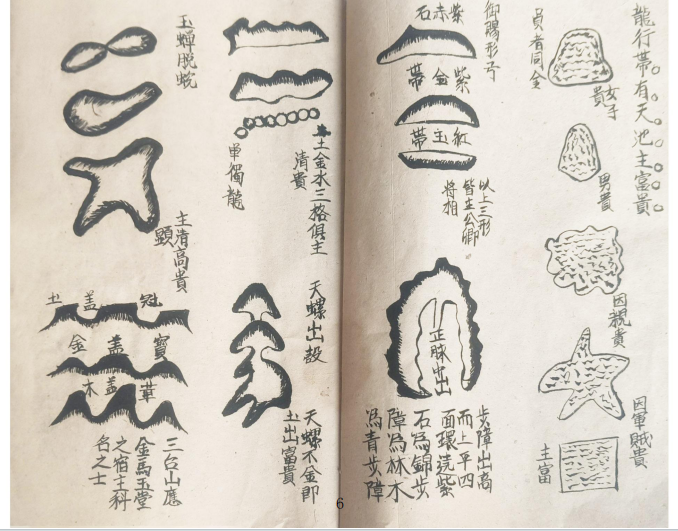 龍行帶有天池主富貴
女子貴
員者同金
男貴
因親貴
因軍賊貴
主富
御陽形于
紫赤石
紫金帶
紅玉帶
以上三形
皆主公卿
將相
正脉中出
步障出高
而上平四
面環遶紫
石爲錦步
障爲林木
爲青步障
土金水三格俱主
清貴
單獨龍
天螺出殼
天螺不金即
土出富貴
玉蟬脫蛻
主清高貴
顕
冠盖土
寶盖金
華盖木
三台山應
金馬玉堂
之宿主科
名之士
6